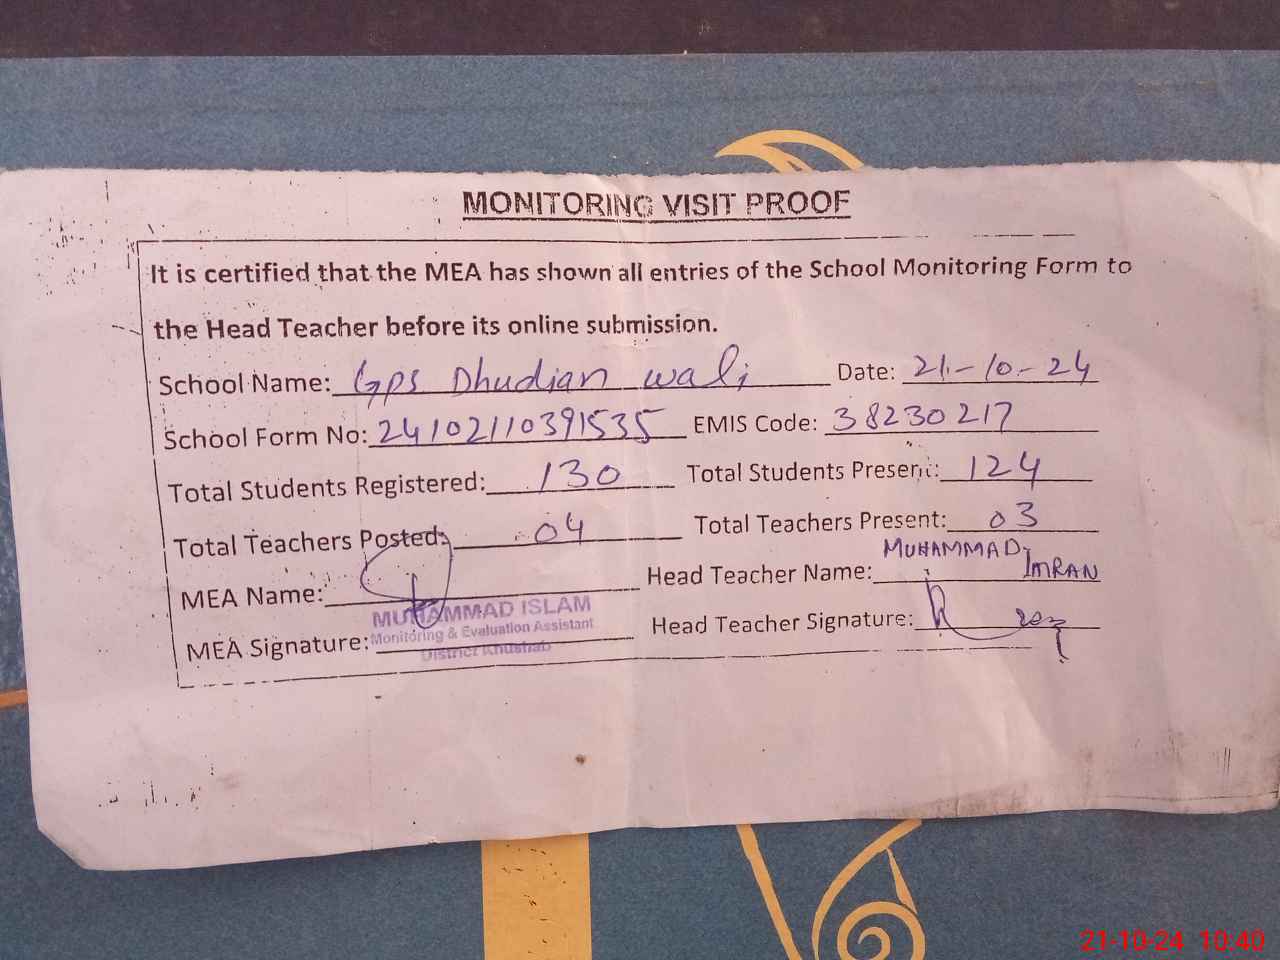 MONITORING VISIT PROOF
It is certified that the MEA has shown all entries of the School Monitoring Form to
the Head Teacher before its online submission.
School Name: Gps Dhudian wali Date: 21-10-24
School Form No: 24102110391535 EMIS Code: 38230217
Total Students Registered: 130 Total Students Present: 124
Total Teachers Posted: 04 Total Teachers Present: 03
MEA Name: Head Teacher Name: MUHAMMAD IMRAN
MUHAMMAD ISLAM
MEA Signature: Monitoring & Evaluation Assistant Head Teacher Signature:
District Khushab
21-10-24 10:40